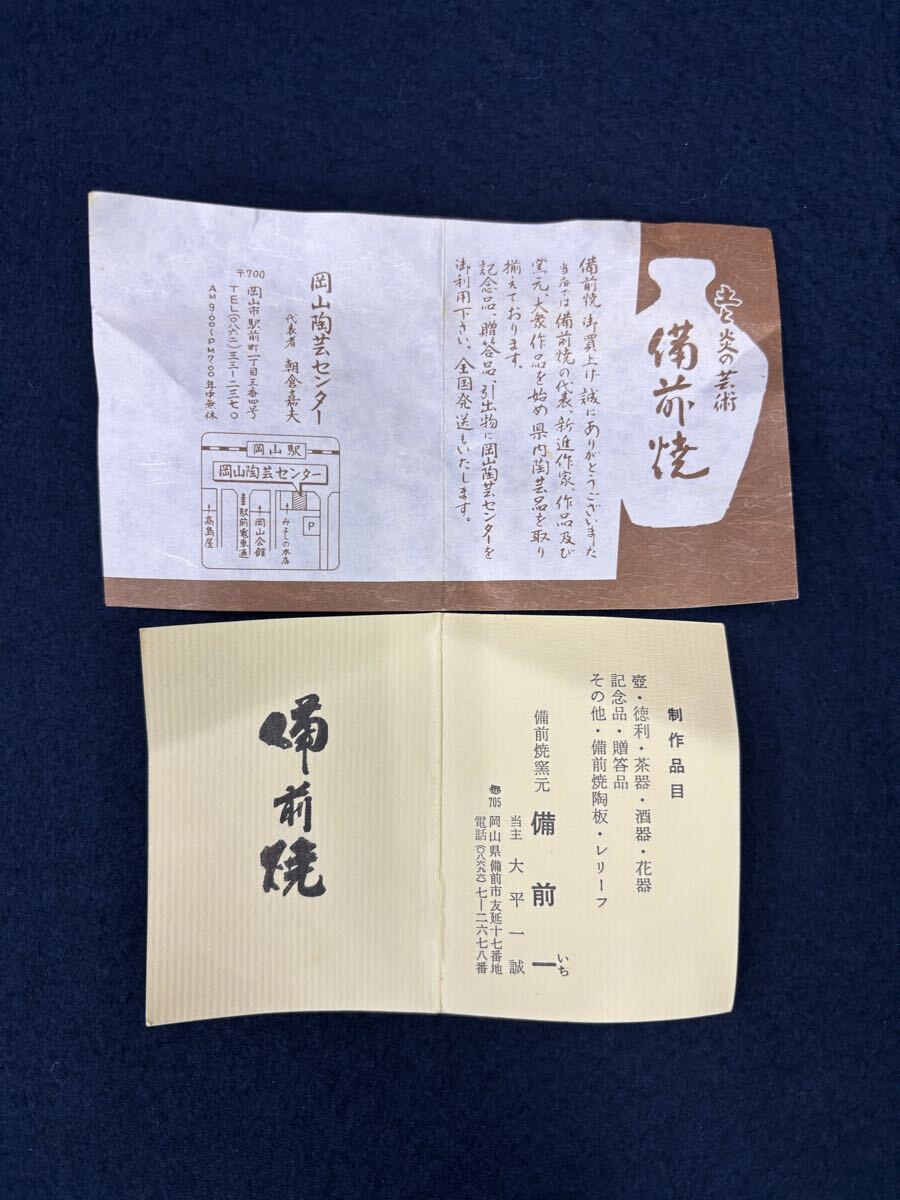 土と炎の芸術
備前焼
備前焼 御買上げ 誠にありがとうございました
当店では備前焼の代表、新進作家 作品及び
窯元、大衆作品を始め県内陶芸品を取り
揃えております。
記念品、贈答品、引出物に岡山陶芸センターを
御利用下さい。全国発送もいたします。
岡山陶芸センター
代表者 朝倉嘉夫
〒700 岡山市駅前町一丁目三番四号
TEL(〇八六二)三三-二三七〇
AM900~PM700 年中無休
岡山駅
岡山陶芸センター
P
みよしの本店
岡山会館
駅前電車通
高島屋
制作品目
壺・徳利・茶器・酒器・花器
記念品・贈答品
その他・備前焼陶板・レリーフ
備前焼窯元 備前一
いち
当主 大平一誠
705 岡山県備前市友延十七番地
電話(〇八六九六)七―二六七八番
備前焼